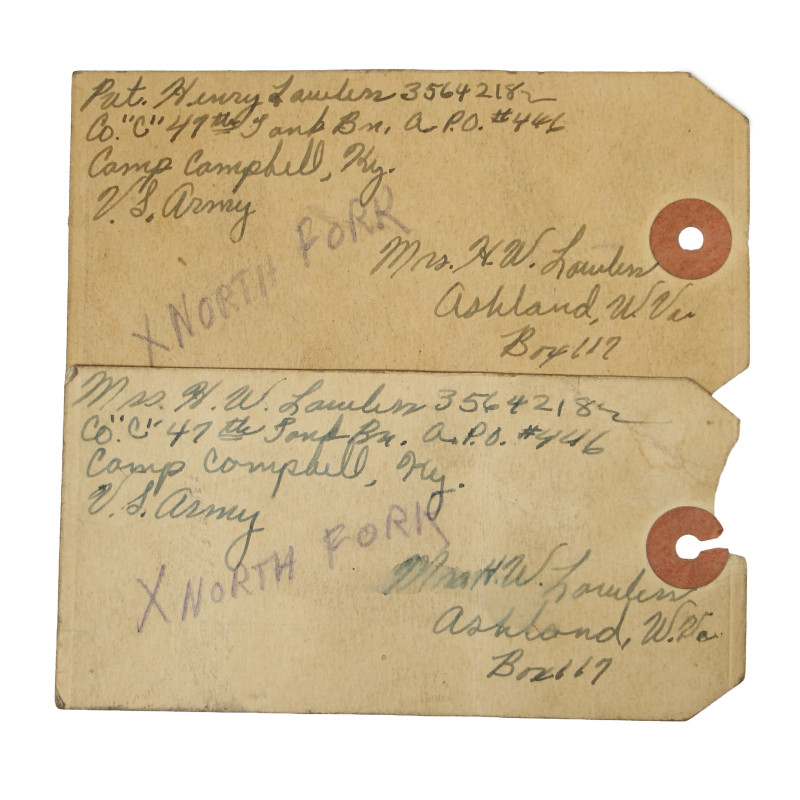 Pvt. Henry Lawless 35642182
Co. "C" 47th Tank Bn. A.P.O. #446
Camp Campbell, Ky.
U.S. Army
X NORTH FORK
Mrs. H.W. Lawless
Ashland, W.Va.
Box 117
Mrs. H.W. Lawless 35642182
Co. "C" 47th Tank Bn. A.P.O. #446
Camp Campbell, Ky.
U.S. Army
X NORTH FORK
Mrs H.W. Lawless
Ashland, W.Va.
Box 117